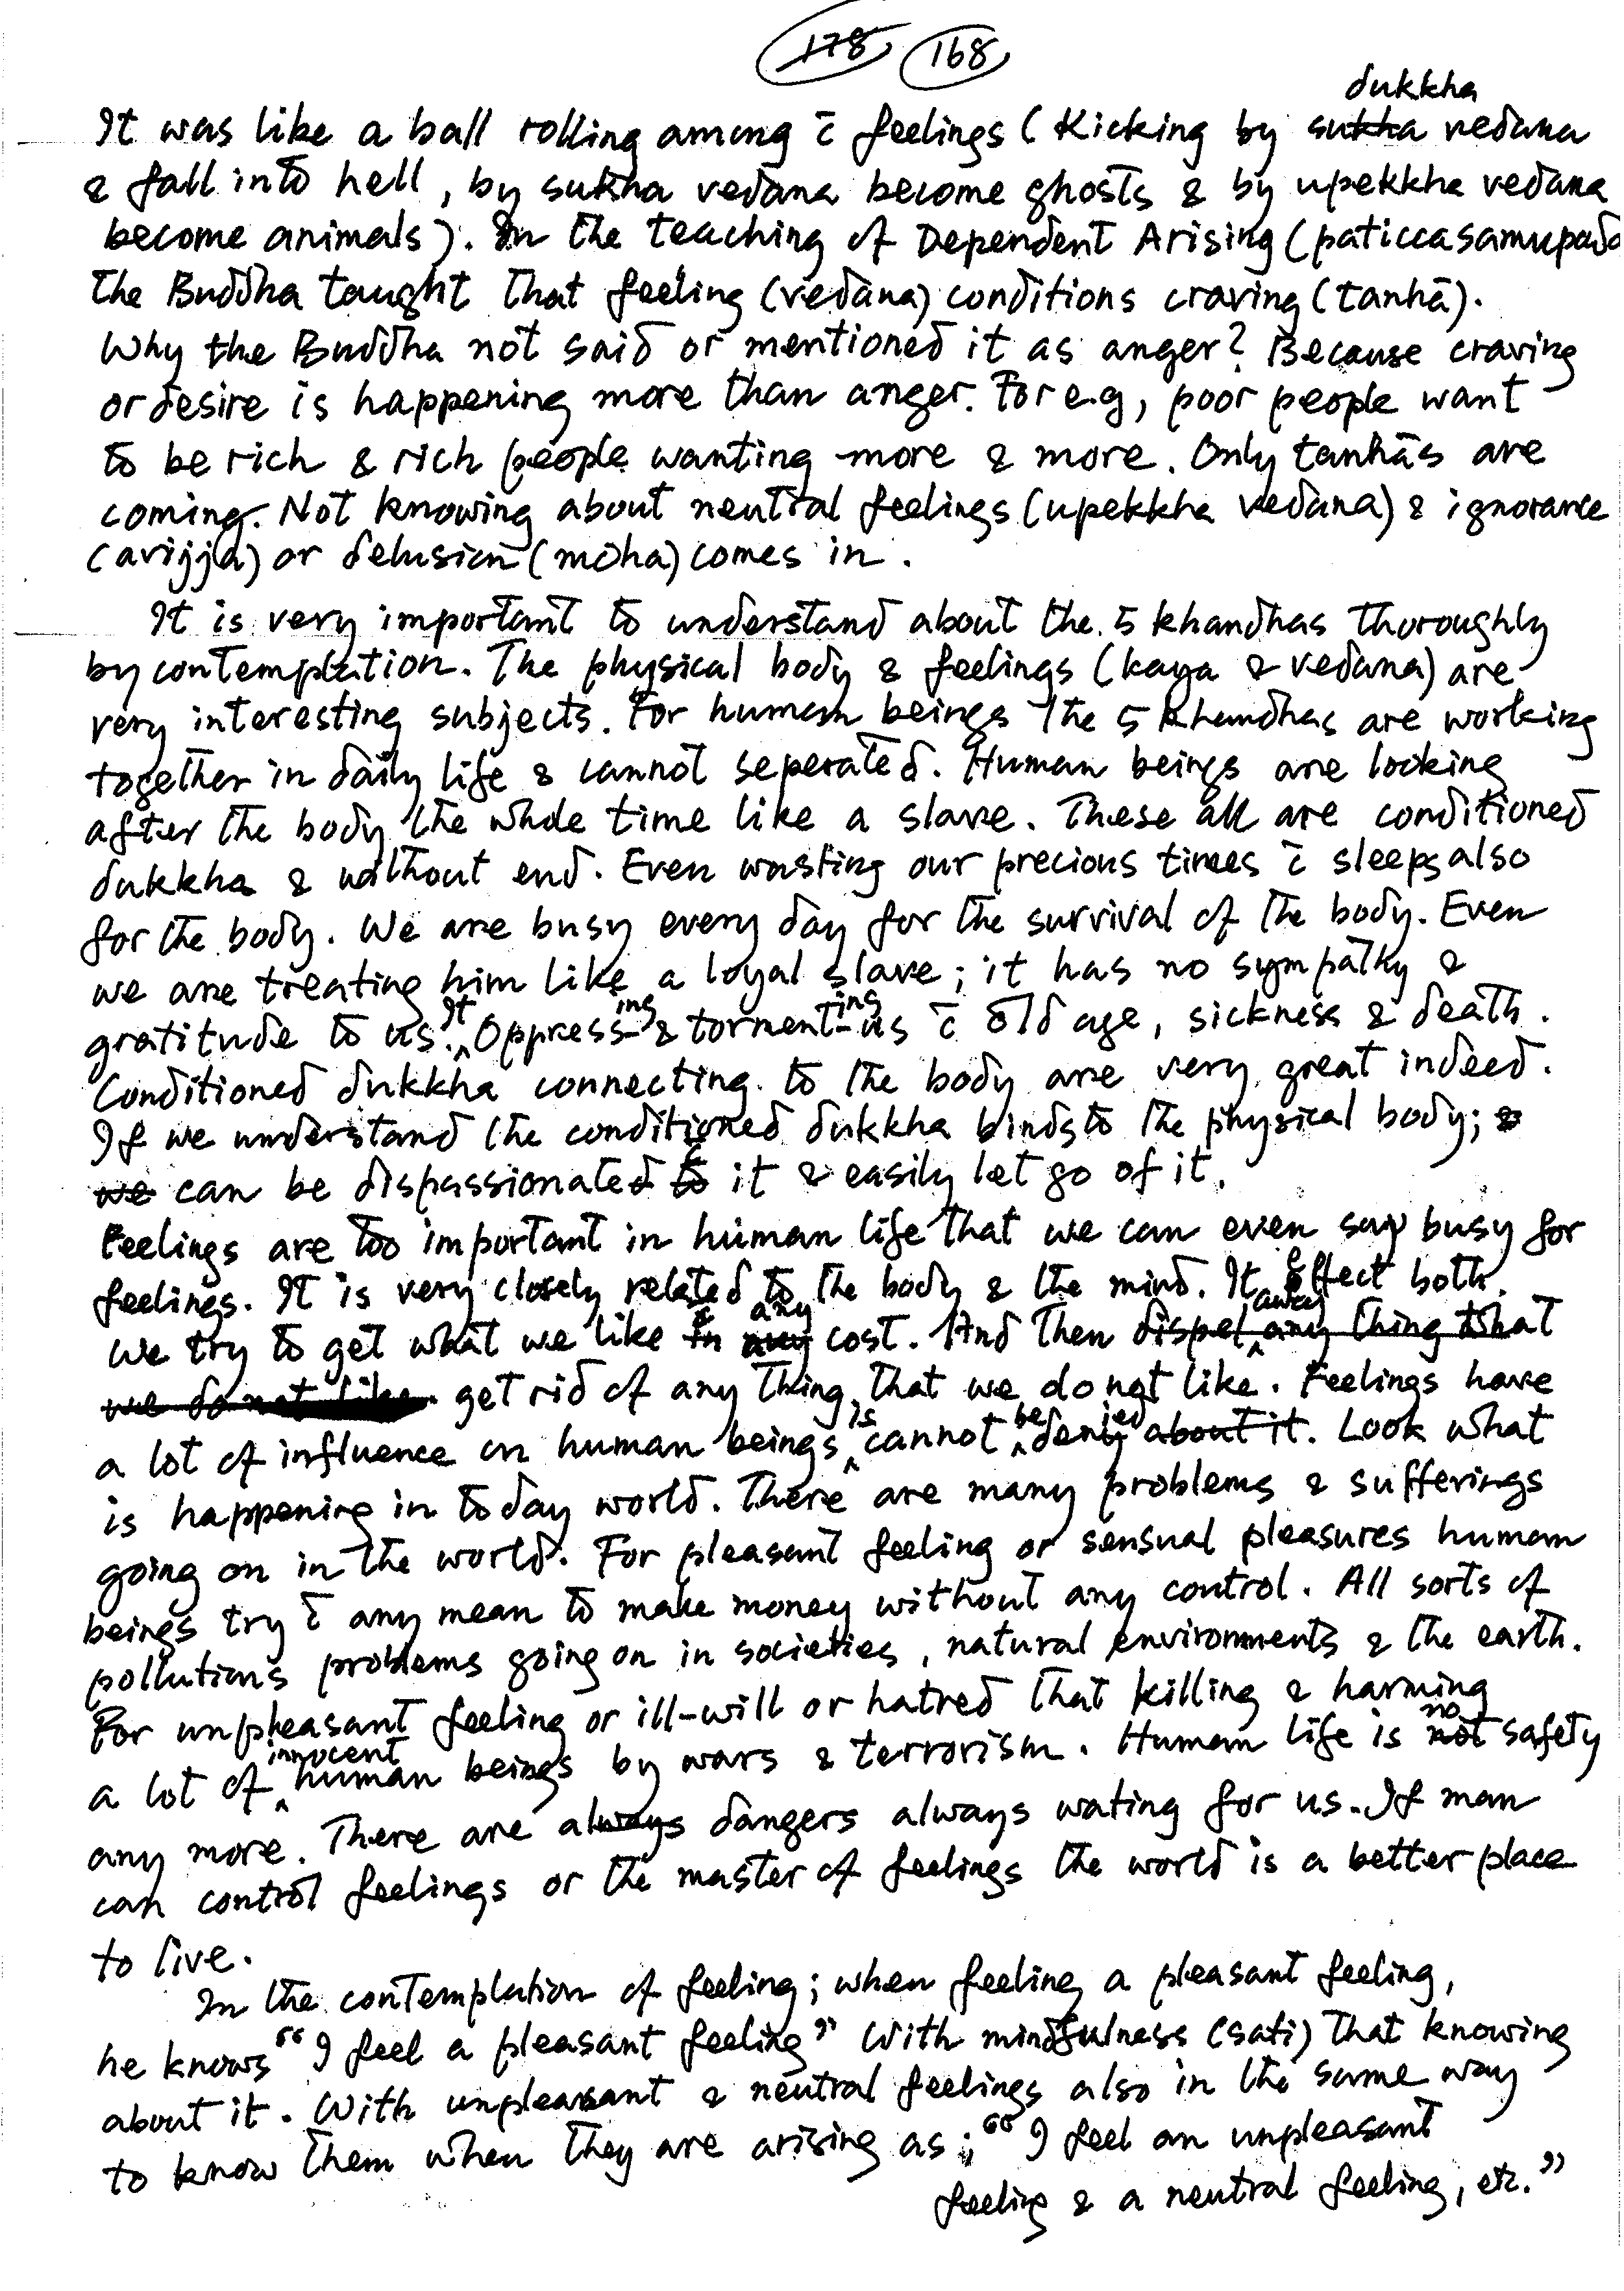 178 168
dukkha
It was like a ball rolling among c̄ feelings (Kicking by sukha vedana
& fall into hell, by sukha vedana become ghosts & by upekkha vedana
become animals). In the teaching of Dependent Arising (paticcasamupada
the Buddha taught that feeling (vedāna) conditions craving (tanhā).
Why the Buddha not said or mentioned it as anger? Because craving
or desire is happening more than anger. For e.g, poor people want
to be rich & rich people wanting more & more. Only tanhās are
coming. Not knowing about neutral feelings (upekkha vedana) & ignorance
(avijjā) or delusion (moha) comes in.
It is very important to understand about the 5 khandhas thoroughly
by contemplation. The physical body & feelings (kaya & vedana) are
very interesting subjects. For human beings the 5 khandhas are working
together in daily life & cannot seperated. Human beings are looking
after the body the whole time like a slave. These all are conditioned
dukkha & without end. Even wasting our precious times c̄ sleeps also
for the body. We are busy every day for the survival of the body. Even
we are treating him like a loyal slave; it has no sympathy &
gratitude to us. It Oppressing & tormenting us c̄ old age, sickness & death.
Conditioned dukkha connecting to the body are very great indeed.
If we understand the conditioned dukkha binds to the physical body; &
we can be dispassionated to c̄ it & easily let go of it.
Feelings are too important in human life that we can even say busy for
feelings. It is very closely related to the body & the mind. It effect both.
We try to get what we like in c̄ any any cost. And then dispel away any thing that
we do not like. get rid of any thing that we do not like. Feelings have
a lot of influence on human beings is cannot be denied about it. Look what
is happening in today world. There are many problems & sufferings
going on in the world. For pleasant feeling or sensual pleasures human
beings try c̄ any mean to make money without any control. All sorts of
pollutions problems going on in societies, natural environments & the earth.
For unpleasant feeling or ill-will or hatred that killing & harming
a lot of innocent human beings by wars & terrorism. Human life is not no safety
any more. There are always dangers always wating for us. If man
can control feelings or the master of feelings the world is a better place
to live.
In the contemplation of feeling; when feeling a pleasant feeling,
he knows "I feel a pleasant feeling" With mindfulness (sati) that knowing
about it. With unpleasant & neutral feelings also in the same way
to know them when they are arising as; "I feel an unpleasant
feeling & a neutral feeling, etc."